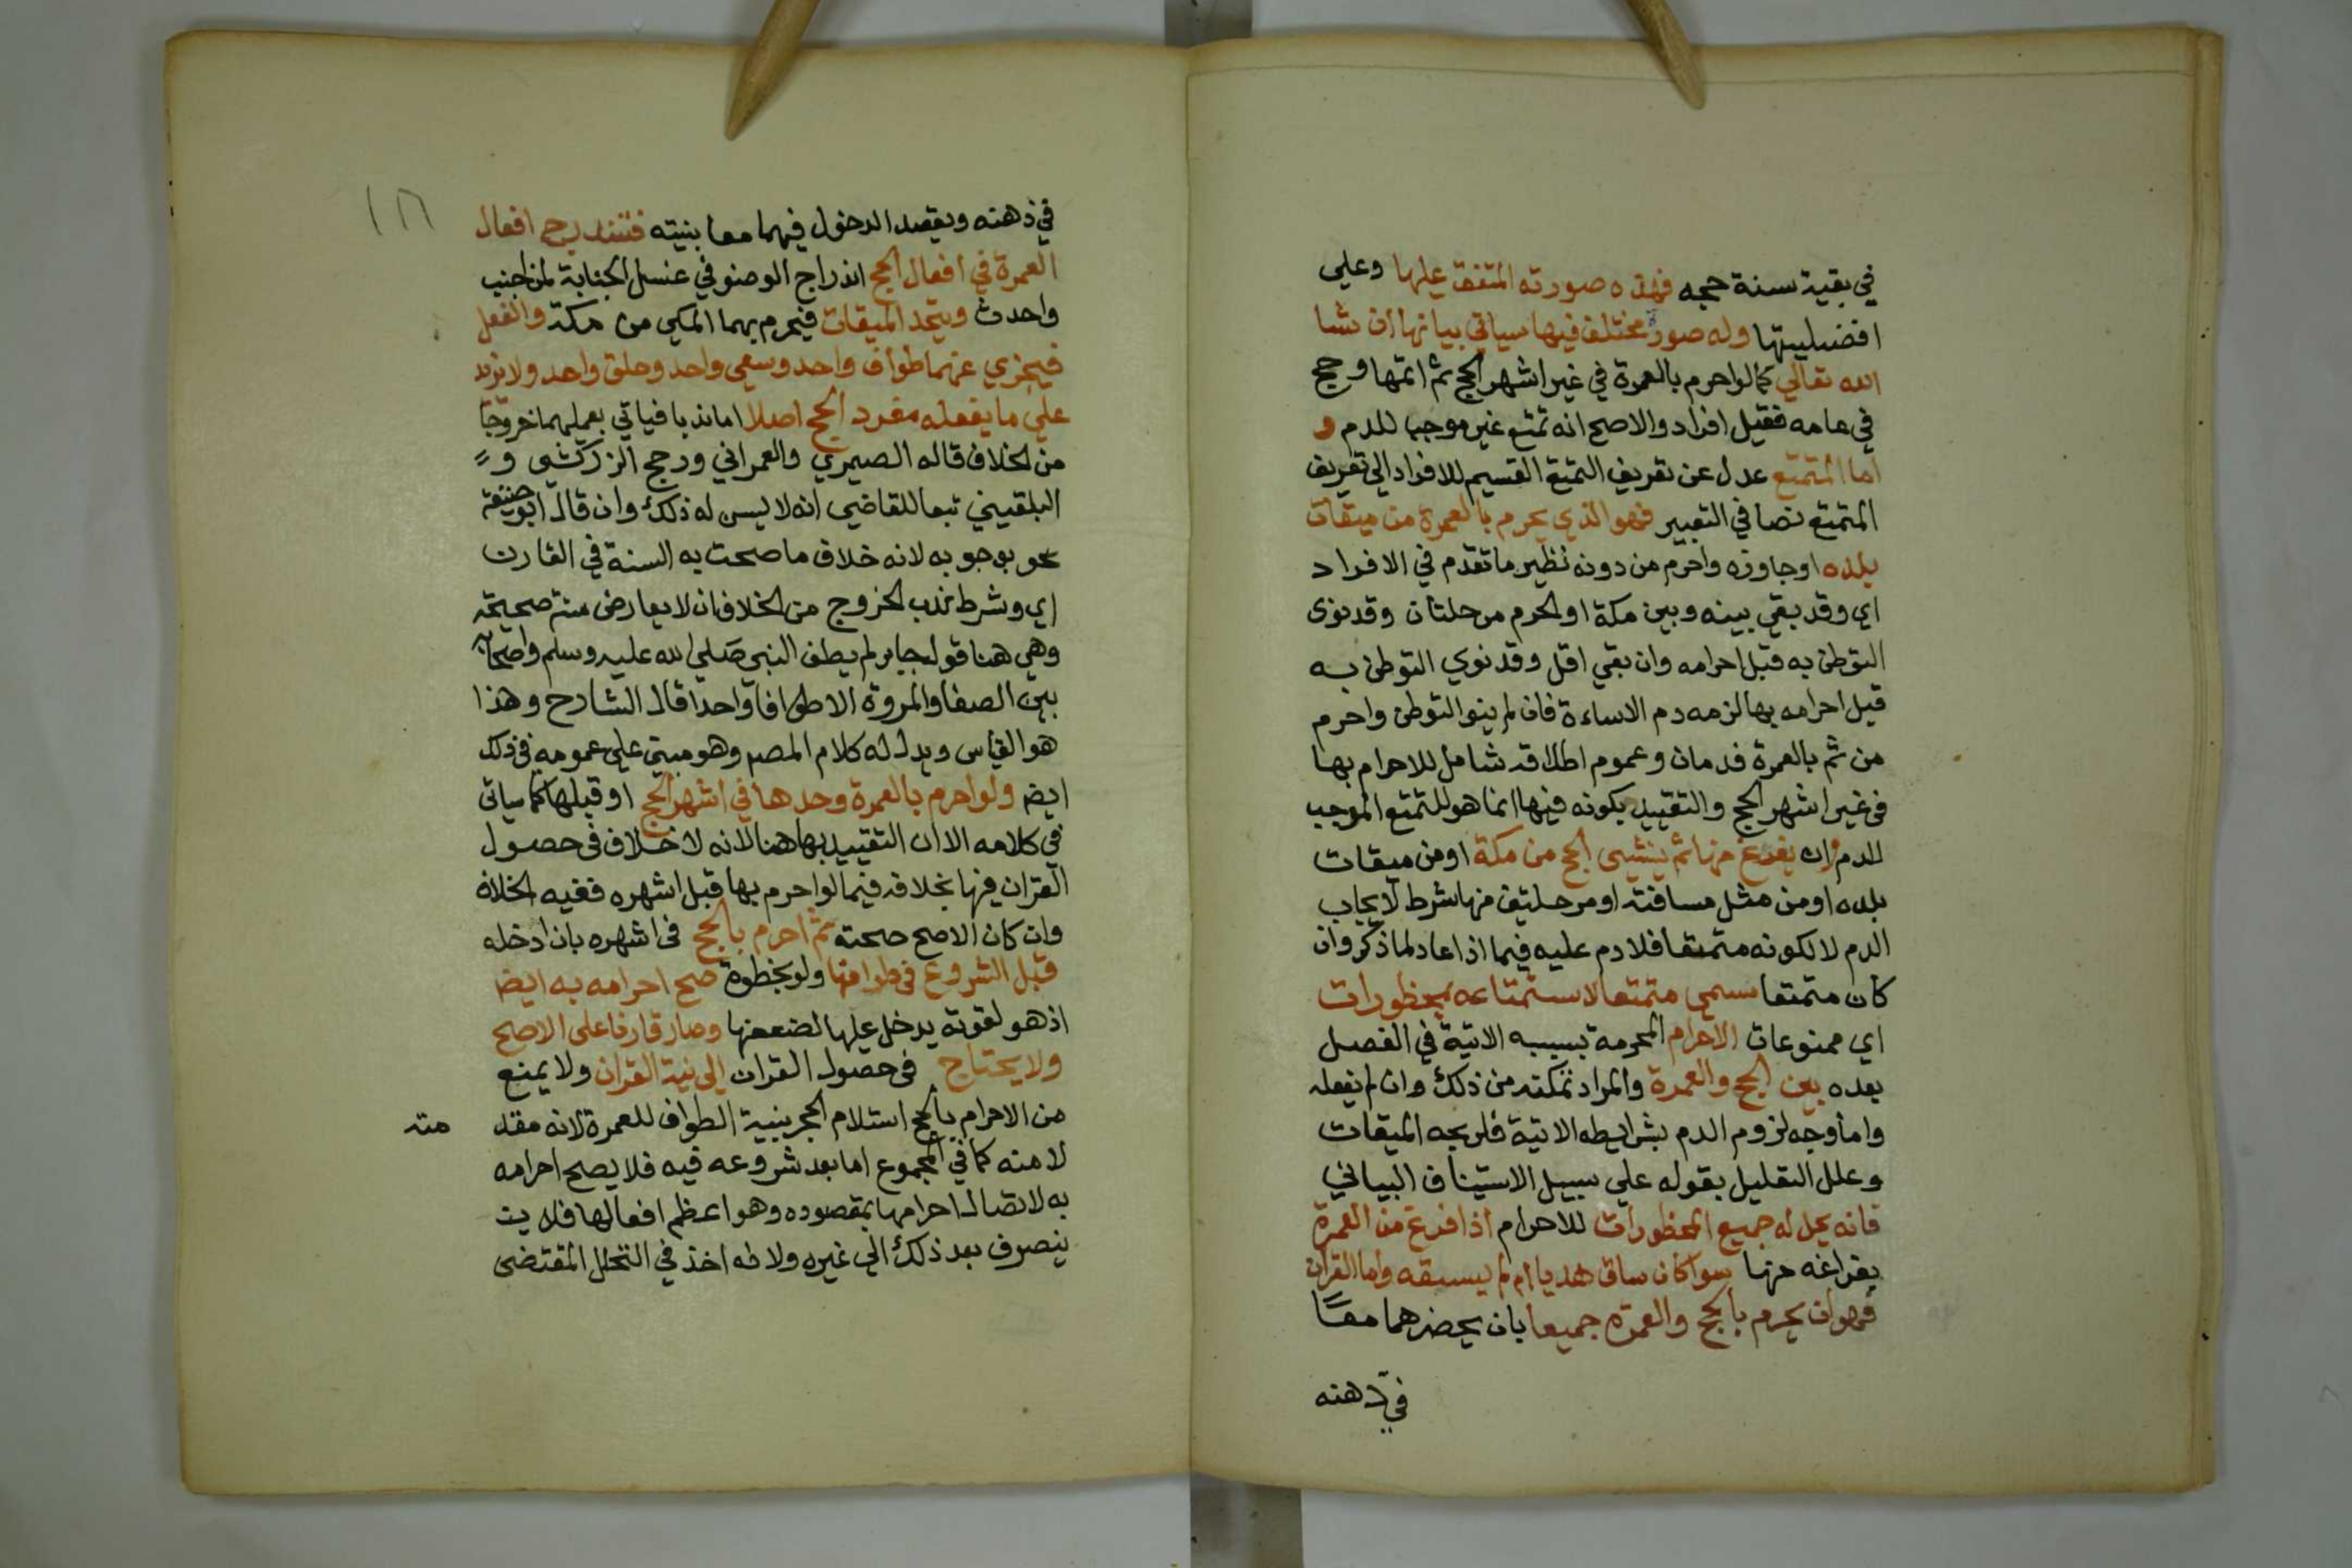 في بقية سنة حجه فهذه صورته المتفق عليها وعلي
افضليتها وله صورة مختلف فيها سياتي بيانها ان شا
الله تعالي كما لو احرم بالعمرة في غير اشهر الحج ثم اتمها وحج
في عامه فقيل افراد والاصح انه تمتع غير موجب للدم و
اما المتمتع عدل عن تعريف التمتع القسيم للافراد الي تعريف
المتمتع نصا في التعبير فهو الذي يحرم بالعمرة من ميقات
بلده او جاوزه واحرم من دونه نظير ما تقدم في الافراد
اي وقد بقي بينه وبين مكة او الحرم مرحلتان وقد نوى
التوطن به قبل احرامه وان بقي اقل وقد نوي التوطن به
قبل احرامه بها لزمه دم الاساءة فان لم ينو التوطن واحرم
من ثم بالعمرة فدمان وعموم اطلاقه شامل للاحرام بها
في غير اشهر الحج والتقييد بكونه فيها انما هو للتمتع الموجب
للدم وان يفرغ منها ثم ينشئ الحج من مكة او من ميقات
بلده او من مثل مسافته او مرحلتين منها شرط لايجاب
الدم لا لكونه متمتعا فلا دم عليه فيما اذا عاد لما ذكر وان
كان متمتعا سمي متمتعا لاستمتاعه بمحظورات
اي ممنوعات الاحرام المحرمة بسببه الاتية في الفصل
بعده بين الحج والعمرة والمراد تمكنه من ذلك وان لم يفعله
واما وجه لزوم الدم بشرايطه الاتية فلربحه الميقات
وعلل التعليل بقوله علي سبيل الاستيناف البياني
فانه يحل له جميع المحظورات للاحرام اذا فرغ من العمرة
بفراغه منها سوا كان ساق هديا ام لم يسقه واما القران
فهو ان يحرم بالحج والعمرة جميعا بان يحضرهما معًا
في ذهنه
في ذهنه ويقصد الدخول فيهما معا بنيته فتندرج افعال
العمرة في افعال الحج اندراج الوضو في غسل الجنابة لمن اجنب
واحدث ويتحد الميقات فيحرم بهما المكي من مكة والفعل
فيجزي عنهما طواف واحد وسعي واحد وحلق واحد ولا يزيد
علي ما يفعله مفرد الحج اصلا اما ندبا فياتي بعملهما خروجا
من الخلاف قاله الصيمري والعمراني ورجح الزركشي و
البلقيني تبعا للقاضي انه لا يسن له ذلك وان قال ابو حنيفة
بوجوبه لانه خلاف ما صحت به السنة في القارن
اي وشرط ندب الخروج من الخلاف ان لا يعارض سنة صحيحة
وهي هنا قول جابر لم يطف النبي صلي الله عليه وسلم واصحابه
بين الصفا والمروة الا طوافا واحدا قال الشارح وهذا
هو القياس ويدل له كلام المص وهو مبني علي عمومه في ذلك
ايض ولو احرم بالعمرة وحدها في اشهر الحج او قبلها كما سياتي
في كلامه الا ان التقييد بها هنا لانه لا خلاف في حصول
القران فيها بخلافه فيما لو احرم بها قبل اشهره ففيه الخلاف
وان كان الاصح صحته ثم احرم بالحج في اشهره بان ادخله
قبل الشروع في طوافها ولو بخطوة صح احرامه به ايضا
اذ هو لقوته يدخل عليها لضعفها وصار قارنا على الاصح
ولا يحتاج في حصول القران الي نية القران ولا يمنع
من الاحرام بالحج استلام الحجر بنية الطواف للعمرة لانه مقد
مته
لا منه كما في المجموع اما بعد شروعه فيه فلا يصح احرامه
به لاتصال احرامها بمقصوده وهو اعظم افعالها فلا
ينصرف بعد ذلك الي غيره ولانه اخذ في التحلل المقتضى